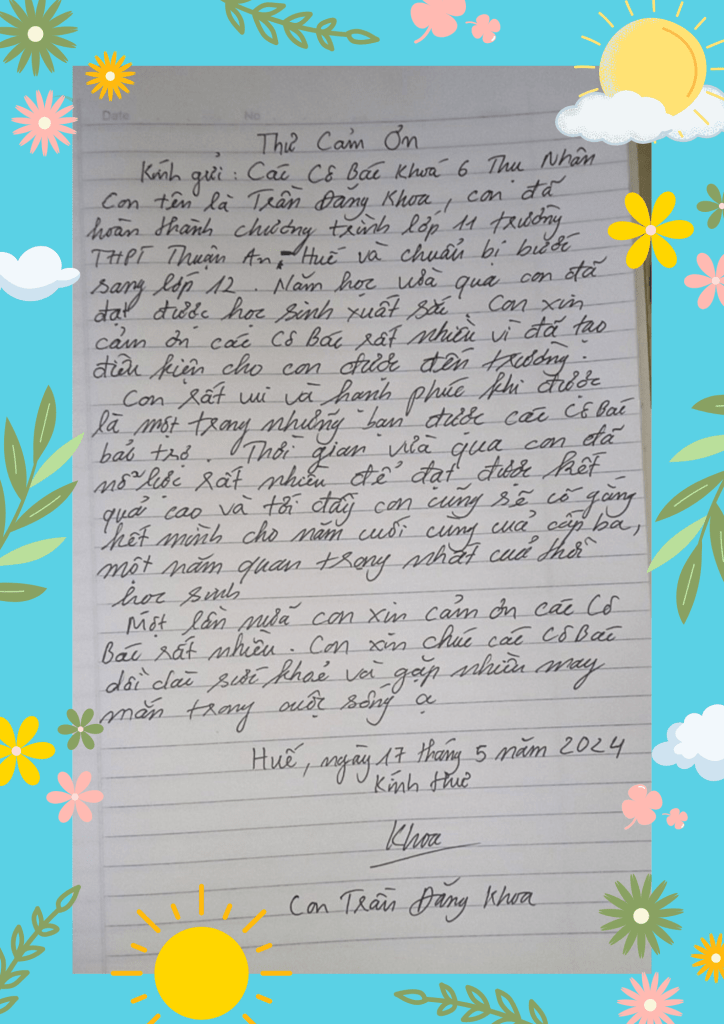 Date No
Thư Cảm Ơn
Kính gửi : Các Cô Bác Khoá 6 Thu Nhân
Con tên là Trần Đăng Khoa, con đã
hoàn thành chương trình lớp 11 trường
THPT Thuận An, Huế và chuẩn bị bước
sang lớp 12. Năm học vừa qua con đã
đạt được học sinh xuất sắc. Con xin
cảm ơn các Cô Bác rất nhiều vì đã tạo
điều kiện cho con được đến trường.
Con rất vui và hạnh phúc khi được
là một trong những bạn được các Cô Bác
bảo trợ. Thời gian vừa qua con đã
nỗ lực rất nhiều để đạt được kết
quả cao và tới đây con cũng sẽ cố gắng
hết mình cho năm cuối cùng của cấp ba,
một năm quan trọng nhất của thời
học sinh
Một lần nữa con xin cảm ơn các Cô
Bác rất nhiều. Con xin chúc các Cô Bác
dồi dào sức khoẻ và gặp nhiều may
mắn trong cuộc sống ạ
Huế, ngày 17 tháng 5 năm 2024
Kính thư
Khoa
Con Trần Đăng Khoa